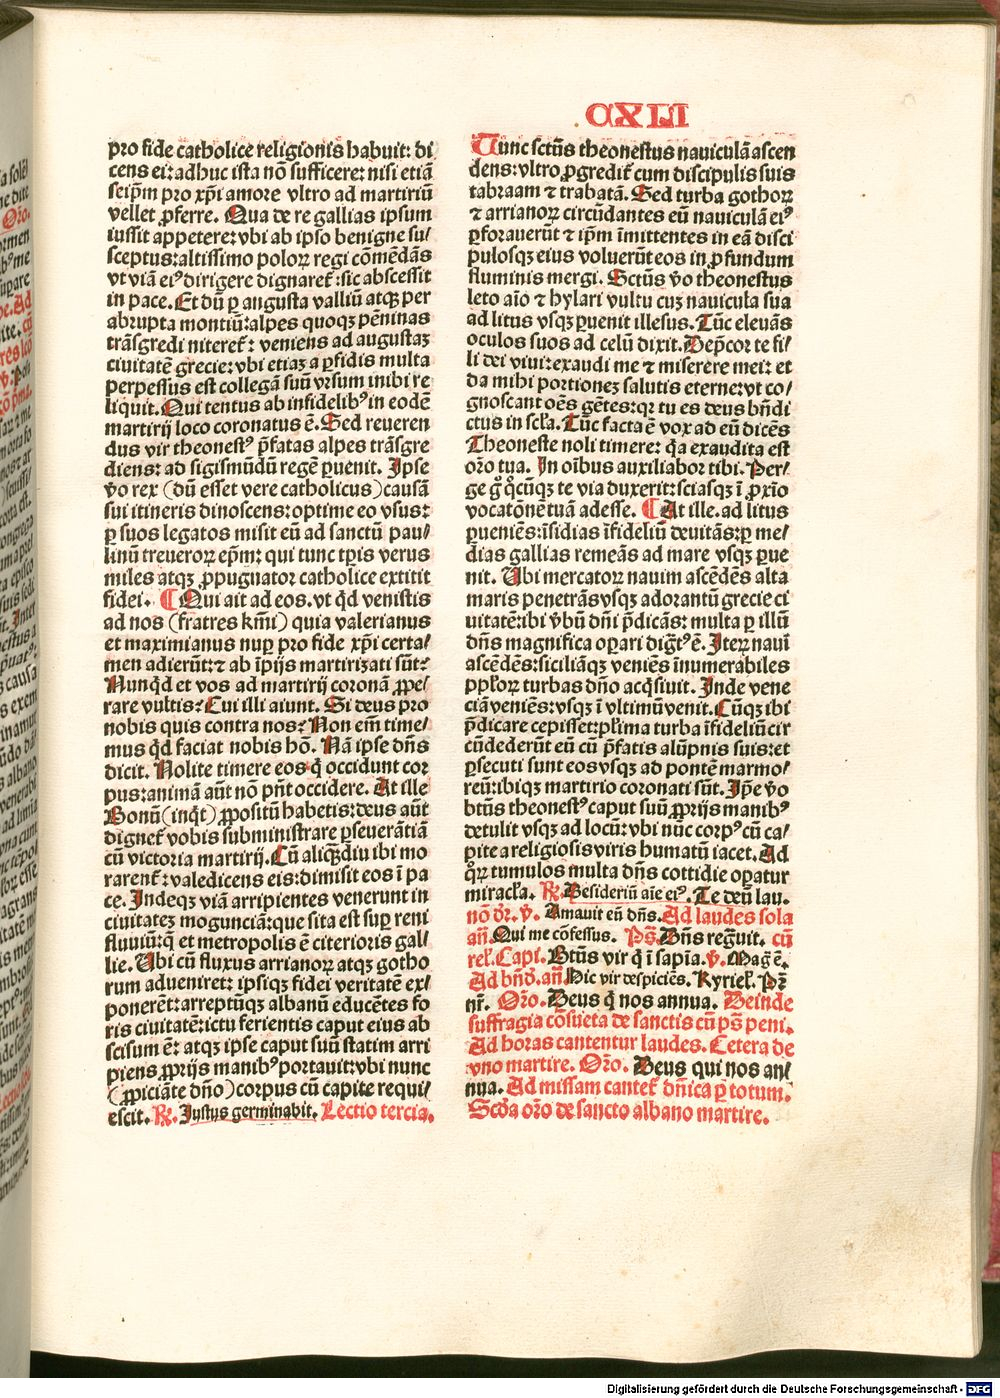 CXLI
pro fide catholice religionis habuit: di
cens ei: adhuc ista nō sufficere: nisi etiā
seip̄m pro xp̄i amore vltro ad martiriū
vellet p̄ferre. Qua de re gallias ipsum
iussit appetere: vbi ab ipso benigne su/
sceptus: altissimo poloꝝ regi cōmēdās
vt viā eiꝰ dirigere dignaret᷑: sic abscessit
in pace. Et dū ꝑ augusta valliū atqꝫ per
abrupta montiū: alpes quoqꝫ pēninas
trāsgredi niteret᷑: veniens ad augustaꝫ
ciuitatē grecie: vbi etiaꝫ a ꝑfidis multa
perpessus est collegā suū vrsum inibi re
liquit. Qui tentus ab infidelibꝰ in eodē
martirij loco coronatus ē. Sed reueren
dus vir theonestꝰ p̄fatas alpes trāsgre
diens: ad sigismūdū regē ꝑuenit. Ipse
v̄o rex (dū esset vere catholicus) causā
sui itineris dinoscens: optime eo vsus:
ꝑ suos legatos misit eū ad sanctū pau/
linū treueroꝝ ep̄m: qui tunc tp̄is verus
miles atqꝫ ꝓpugnator catholice extitit
fidei. ¶ Qui ait ad eos. vt qd̄ venistis
ad nos (fratres km̄i) quia valerianus
et maximianus nuꝑ pro fide xp̄i certa/
men adierūt: ⁊ ab īpijs martirizati sūt:
Nunqd̄ et vos ad martirij coronā ꝓpe/
rare vultis? Cui illi aiunt. Si deus pro
nobis quis contra nos? Non em̄ time/
mus qd̄ faciat nobis hō. Nā ipse dn̄s
dicit. Nolite timere eos q̄ occidunt cor
pus: animā aūt nō pn̄t occidere. At ille
Bonū (inq̄t) ꝓpositū habetis: deus aūt
dignet᷑ vobis subministrare ꝑseuerātiā
cū victoria martirij. Cū aliqꝫdiu ibi mo
rarent᷑: valedicens eis: dimisit eos ī pa
ce. Indeqꝫ viā arripientes venerunt in
ciuitateꝫ mogunciā: que sita est suꝑ reni
fluuiū: q̄ et metropolis ē citerioris gal/
lie. Ubi cū fluxus arrianoꝝ atqꝫ gotho
rum adueniret: ipsiqꝫ fidei veritatē ex/
ponerēt: arreptūqꝫ albanū educētes fo
ris ciuitatē: ictu ferientis caput eius ab
scisum ē: atqꝫ ipse caput suū statim arri
piens ꝓprijs manibꝰ portauit: vbi nunc
(ꝓpiciāte dn̄o) corpus cū capite requi/
escit. ℟. Justus germinabit. Lectio tercia.
Tunc sct̄us theonestus nauiculā ascen
dens: vltro ꝓgredit᷑ cum discipulis suis
tabraam ⁊ trabatā. Sed turba gothoꝝ
⁊ arrianoꝝ circūdantes eū nauiculā eiꝰ
ꝑforauerūt ⁊ ip̄m īmittentes in eā disci
pulosqꝫ eius voluerūt eos in ꝓfundum
fluminis mergi. Sct̄us v̄o theonestus
leto aīo ⁊ hylari vultu cuꝫ nauicula sua
ad litus vsqꝫ ꝑuenit illesus. Tūc eleuās
oculos suos ad celū dixit. Dep̄cor te fi/
li dei viui: exaudi me ⁊ miserere mei: et
da mihi portioneꝫ salutis eterne: vt co/
gnoscant oēs gētes: qꝛ tu es deus bn̄di
ctus in scl̄a. Tūc facta ē vox ad eū dicēs
Theoneste noli timere: q̄a exaudita est
or̄o tua. In oībus auxiliabor tibi. Per/
ge g̊ q̊cūqꝫ te via duxerit: sciasqꝫ ī ꝓxīo
vocatōnē tuā adesse. ¶ At ille. ad litus
ꝑueniēs: īsidias īfideliū deuitās: ꝑ me/
dias gallias remeās ad mare vsqꝫ ꝑue
nit. Ubi mercatoꝝ nauim ascēdēs alta
maris penetrās vsqꝫ adorantū grecie ci
uitatē: ibi v̄bū dn̄i p̄dicās: multa ꝑ illū
dn̄s magnifica oꝑari digt̄ꝰ ē. Iteꝝ nauī
ascēdēs: siciliāqꝫ veniēs īnumerabiles
pp̄loꝝ turbas dn̄o acq̄siuit. Inde vene
ciā veniēs: vsqꝫ ī vltimū venit. Cūqꝫ ibi
p̄dicare cepisset: pl̄ima turba īfideliū cir
cūdederūt eū cū p̄fatis alūpnis suis: et
ꝑsecuti sunt eos vsqꝫ ad pontē marmo/
reū: ibiqꝫ martirio coronati sūt. Ip̄e v̄o
bt̄us theonestꝰ caput suū ꝓprijs manibꝰ
detulit vsqꝫ ad locū: vbi nūc corpꝰ cū ca/
pite a religiosis viris humatū iacet. Ad
q̊ꝝ tumulos multa dn̄s cottidie oꝑatur
miracl̄a. ℟. Desideriū aīe eiꝰ. Te deū lau.
nō dr̄. v̄. Amauit eū dn̄s. Ad laudes sola
an̄. Qui me cōfessus. Ps̄. Dn̄s regnuit. cū
rel̄. Capi. Bt̄us vir q̄ ī sapīa. v̄. Maḡ ē.
Ad bn̄d. an̄. Hic vir despiciēs. Kyriel. Pꝛ
nr̄. Or̄o. Deus q̄ nos annua. Deinde
suffragia cōsueta de sanctis cū ps̄ peni.
Ad horas cantentur laudes. Cetera de
vno martire. Or̄o. Deus qui nos an/
nua. Ad missam cantet᷑ dn̄ica ꝑ totum.
Scd̄a or̄o de sancto albano martire.
Digitalisierung gefördert durch die Deutsche Forschungsgemeinschaft - DFG